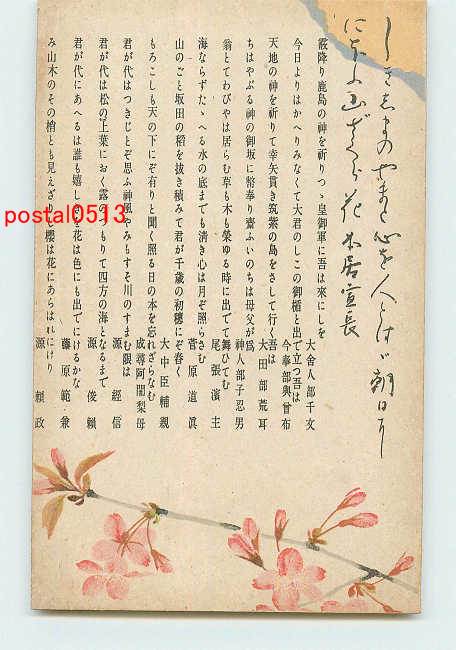 しき志まのやまと心を人とはゞ朝日に
にほふ山ざくら花 本居宣長
霰降り鹿島の神を祈りつゝ皇御軍に吾は來にしを 大舍人部千文
今日よりはかへりみなくて大君のしこの御楯と出で立つ吾は 今奉部與曾布
天地の神を祈りて幸矢貫き筑紫の島をさして行く吾は 大田部荒耳
ちはやぶる神の御坂に幣奉り齋ふいのちは母父が爲 神人部子忍男
翁とてわびやは居らむ草も木も榮ゆる時に出でて舞ひてむ 尾張濱主
海ならずたゝへる水の底までも淸き心は月ぞ照らさむ 菅原道眞
山のごと坂田の稻を拔き積みて君が千歲の初穗にぞ舂く 大中臣輔親
もろこしも天の下にぞ有りと聞く照る日の本を忘れざらなむ 成尋阿闍梨母
君が代はつきじとぞ思ふ神風やみもすそ川のすまむ限は 源經信
君が代は松の上葉におく露のつもりて四方の海となるまで 源俊賴
君が代にあへるは誰も嬉しきを花は色にも出でにけるかな 藤原範兼
み山木のその梢とも見えざりし櫻は花にあらはれにけり 源賴政
postal0513